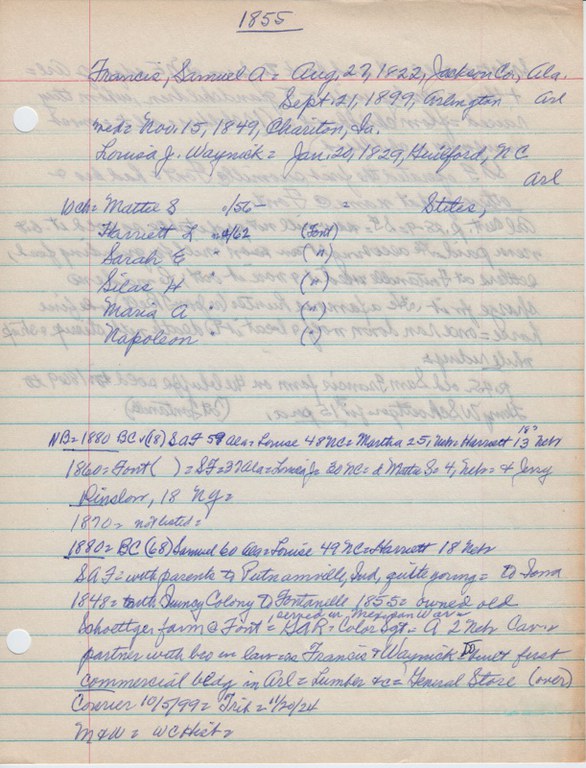 1855
Francis, Samuel A = Aug. 27, 1822, Jackson Co, Ala.
Sept. 21, 1899, Arlington Arl
med = Nov. 15, 1849, Chariton, Ia.
Louisa J. Waynick = Jan. 20, 1829, Guilford, NC
Arl
ch = Mattie S /56 - = Stiles,
Harriett L = 4/62 (Font)
Sarah E " (")
Silas H " (")
Maria A " (")
Napoleon " (")
NB = 1880 BC (18) SAF 59 Ala = Louise 48 NC = Martha 25, Nebr = Harriett 13 Nebr
1860 = Font ( ) = SF = 37 Ala = Louisa J = 30 NC = d Mattie S = 4, Nebr = & Jerry
Winslow, 18 NY =
1870 = not listed =
1880 = BC (68) Samuel 60 Ala = Louise 49 NC = Harriett 18 Nebr
SAF = with parents to Putnamville, Ind, quite young = to Iowa
1848 = with Quincy Colony to Fontanelle 1855 = owned old
served in Mexican War =
Schoettger farm @ Font = GAR = Color Sgt = A 2 Nebr Cav =
partner with bro in law as Francis & Waynick & built first
commercial bldg in Arl = Lumber &c = General Store (over)
Courier 10/5/99 = Trib = 11/20/24
M&W = WC Hist =